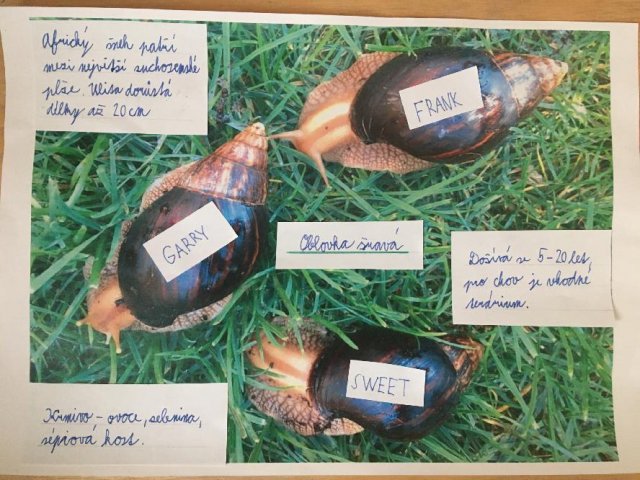 Africký šnek patří
mezi největší suchozemské
plže. Ulita dorůstá
délky až 20 cm
FRANK
GARRY
Oblovka žravá
Dožívá se 5-20 let,
pro chov je vhodné
terárium.
SWEET
Krmivo - ovoce, zelenina,
sépiová kost.